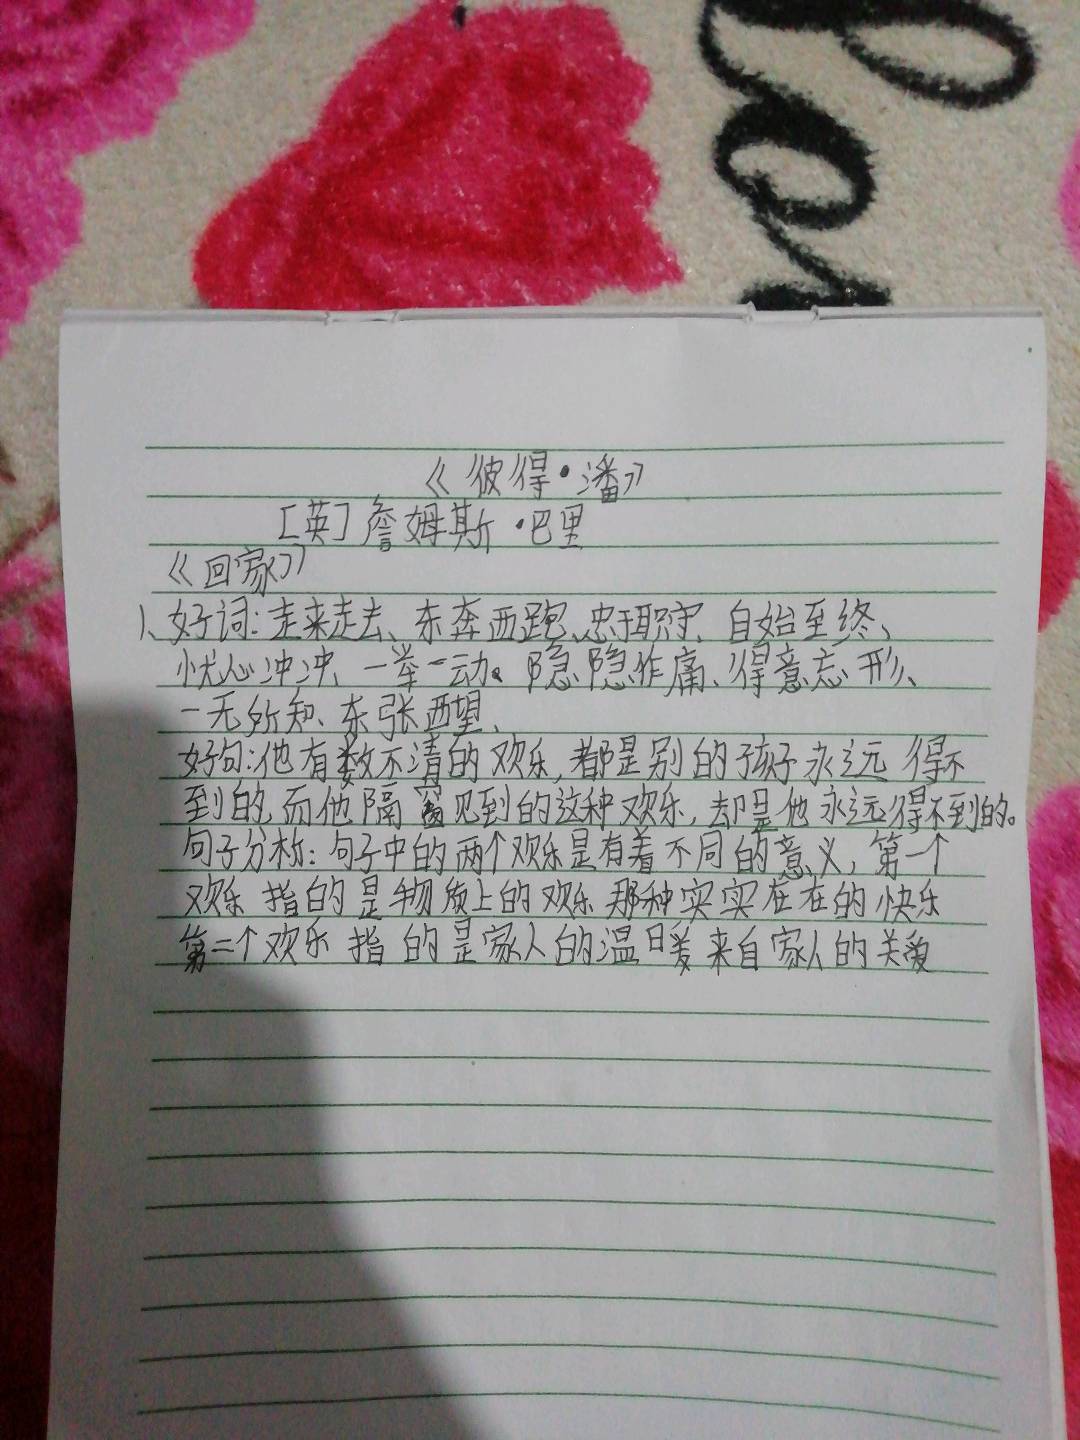 《彼得·潘》
[英]詹姆斯·巴里
《回家》
1、好词:走来走去、东奔西跑、忠于职守、自始至终、
忧心冲冲、一举一动、隐隐作痛、得意忘形、
一无所知、东张西望、
好句:他有数不清的欢乐,都是别的孩子永远得不
到的,而他隔窗见到的这种欢乐,却是他永远得不到的。
句子分析:句子中的两个欢乐是有着不同的意义,第一个
欢乐指的是物质上的欢乐那种实实在在的快乐
第二个欢乐指的是家人的温暖来自家人的关爱